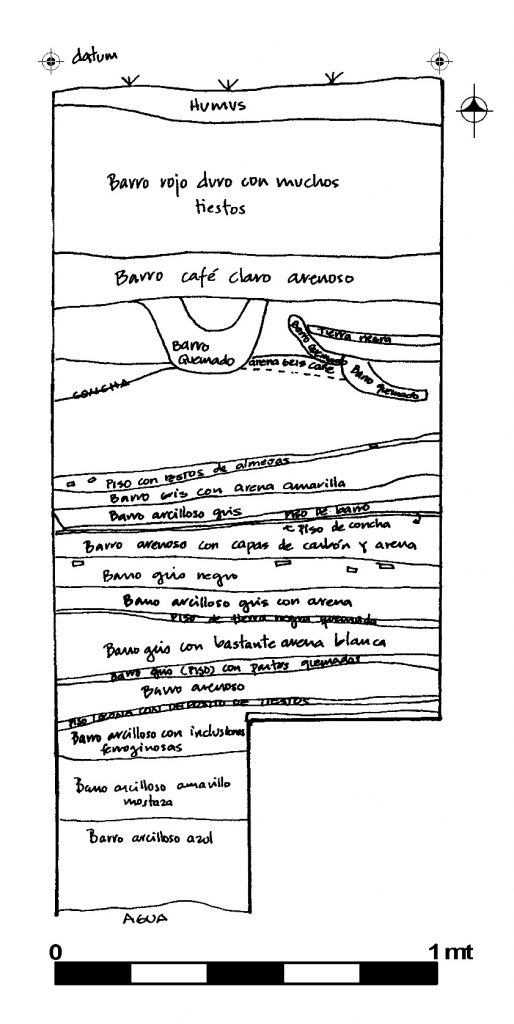 datum
HUMUS
Barro rojo duro con muchos
tiestos
Barro café claro arenoso
Barro
Quemado
Barro Quemado
Tierra negra
arena Gris Café
Barro Quemado
CONCHA
Piso con restos de almejas
Barro Gris con arena amarilla
Barro arcilloso gris
Piso de barro
Piso de concha
Barro arenoso con capas de carbón y arena
Barro gris negro
Barro arcilloso gris con arena
Piso de tierra negra quemada
Barro gris con bastante arena blanca
Barro gris (PISO) con partes quemadas
Barro arenoso
CON DEPOSITO DE TIESTOS
Barro arcilloso con inclusiones
ferroginosas
Barro arcilloso amarillo
mostaza
Barro arcilloso azul
AGUA
0 1 mt